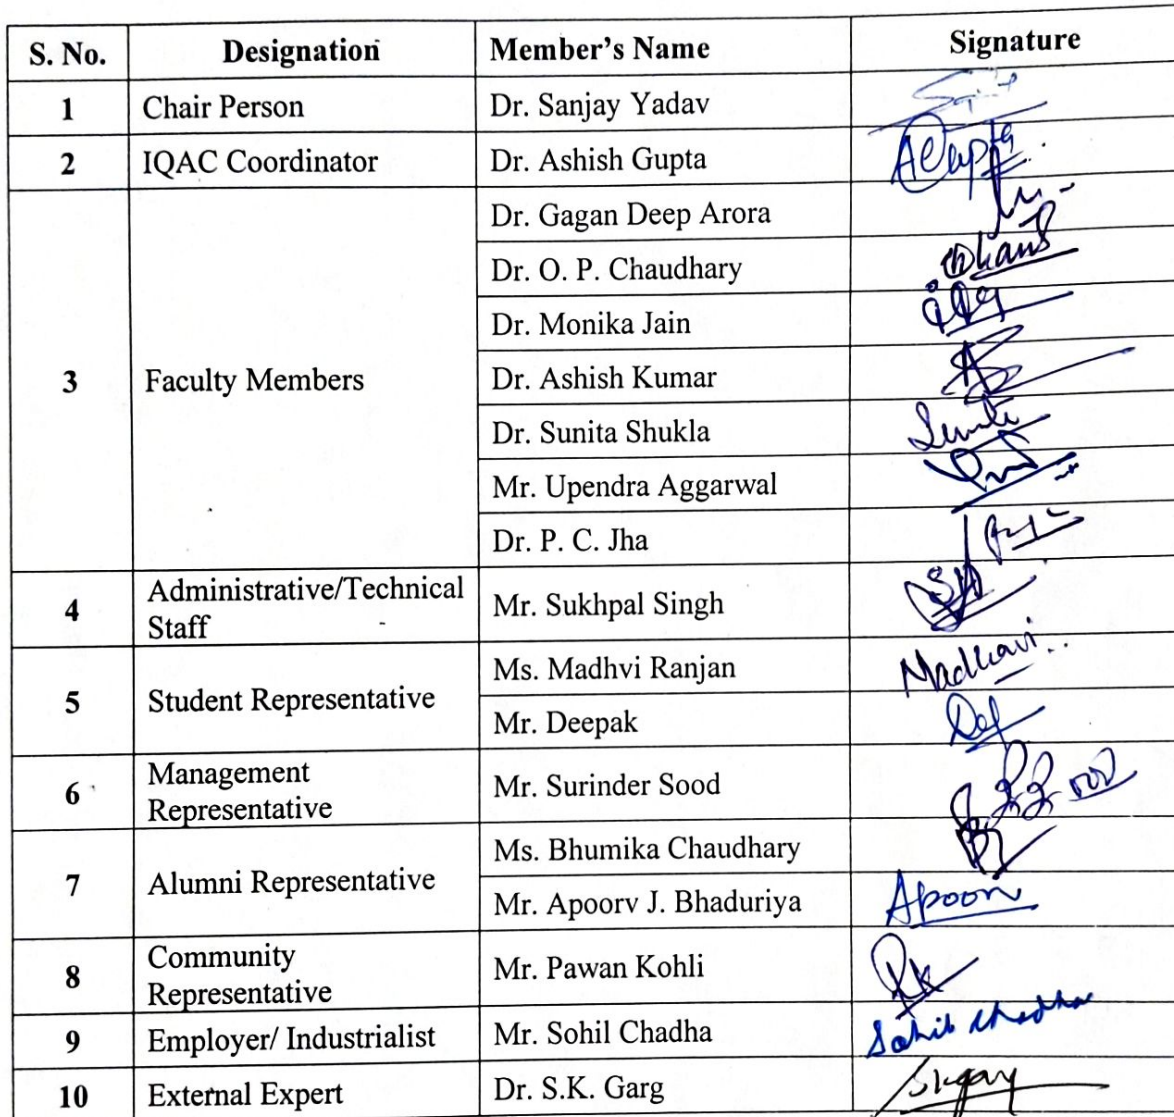 S. No. Designation Member's Name Signature
1 Chair Person Dr. Sanjay Yadav
2 IQAC Coordinator Dr. Ashish Gupta AGupta
Dr. Gagan Deep Arora
Dr. O. P. Chaudhary
Dr. Monika Jain
3 Faculty Members Dr. Ashish Kumar
Dr. Sunita Shukla Sunita
Mr. Upendra Aggarwal
Dr. P. C. Jha
4 Administrative/Technical
Staff Mr. Sukhpal Singh
5 Student Representative Ms. Madhvi Ranjan Madhavi
Mr. Deepak
6 Management
Representative Mr. Surinder Sood
7 Alumni Representative Ms. Bhumika Chaudhary
Mr. Apoorv J. Bhaduriya Apoorv
8 Community
Representative Mr. Pawan Kohli
9 Employer/ Industrialist Mr. Sohil Chadha Sohil Chadha
10 External Expert Dr. S.K. Garg